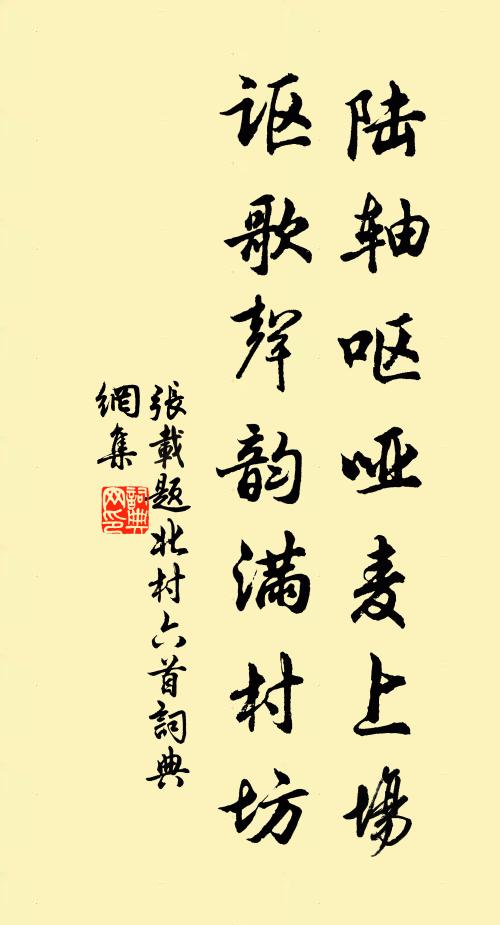 陆轴呕哑麦上場
讴歌声韵满村坊
張載題北村六首詞典
網集
詞典
网印